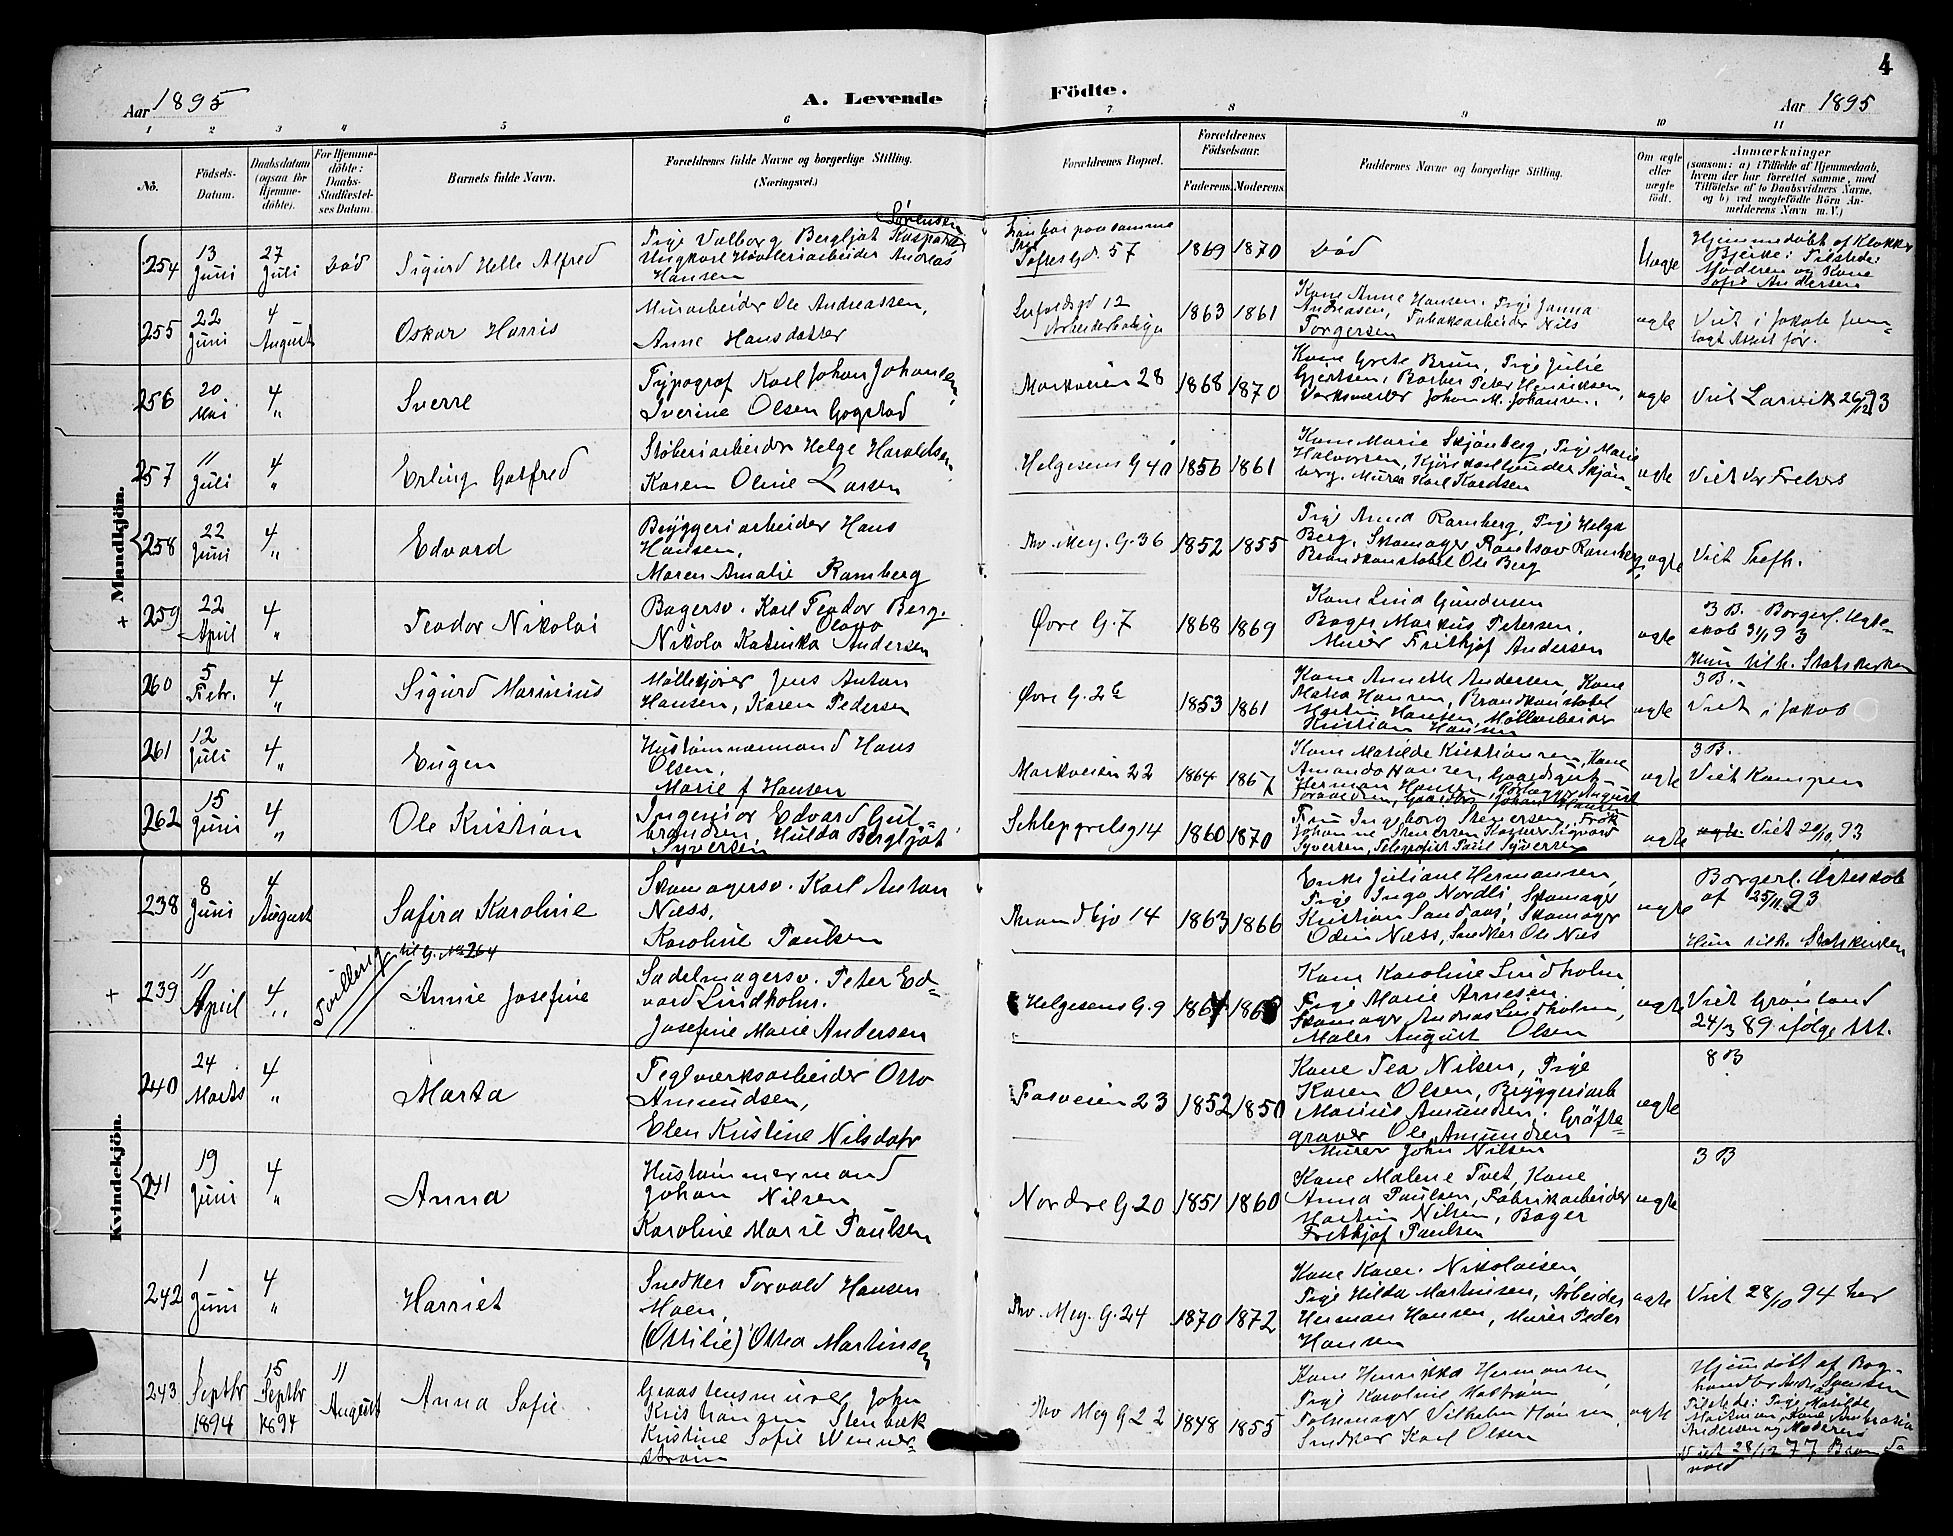 4
Aar 1895
A. Levende
Födte.
Aar 1895
1 2 3 4 5 6 7 8 9 10 11
No.
Födsels-
Datum.
Daabsdatum
(ogsaa for
Hjemme-
döbte).
For Hjemme-
döbte:
Daabs-
Stadfæstel-
ses Datum.
Barnets fulde Navn.
Forældrenes fulde Navne og borgerlige Stilling.
(Næringsvei.)
Forældrenes Bopæl.
Forældrenes
Födselsaar.
Faderens. Moderens.
Faddernes Navne og borgerlige Stilling.
Om ægte
eller
uægte
født.
Anmærkninger
(saasom: a) i Tilfælde af Hjemmedaab,
hvem der har forrettet samme, med
Tilföielse af to Daabsvidners Navne,
og b) ved uægtefödte Börn An-
melderens Navn m. V.)
Mandkjön.
254
13
Juni
27
Juli
Död
Sigurd Helle Alfred
Sörensen
Pige Valborg Bergljot
Ungkarl Høvleriarbeider Andreas
Hansen
Toftes Gd. 57
1869 1870
Död
Uægte
Hjemmedöbt af Klokker
Bjerke: Tilstede:
Moderen og Kone
Sofie Andersen
255
22
Juni
4
August
Oskar Harris
Murarbeider Ole Andreassen,
Anne Hansdatter
12
Arbeiderbolig
1863 1861
Kone Anne Hansen, Pige Janna
Andreasen, Tobaksarbeider Nils
Torgersen
ægte
Viet i Jakob
256
20
Mai
4
"
Sverre
Typograf Karl Johan Johansen,
Iverine Olsen Gogstad
Markveien 28
1868 1870
Kone Grete Brun, Pige Julie
Gjertsen, Barber Peter Henriksen,
Værksmester Johan M. Johansen.
ægte
Viet Larvik 26/12 93
257
11
Juli
4
"
Erling Gotfred
Støberiarbeider Helge Haraldsen
Karen Oline Larsen
Helgesens G 40
1856 1861
Kone Marie Skjönberg, Pige Marie
Halvorsen, Kjörekarl Gunder Skjön-
berg. Murer Karl
ægte
Viet Vor Frelsers
258
22
Juni
4
"
Edvard
Bryggeriarbeider Hans
Hansen,
Maren Amalie Ramberg
Thv. Mey. G. 36
1852 1855
Pige Anna Ramberg, Pige Helga
Berg. Skomager Ramberg,
Brandkonstabel Ole Berg
ægte
Viet Trefh.
+
259
22
April
4
"
Teodor Nikolai
Bagersv. Karl Teodor Berg.
Olava
Nikola Katinka Andersen
Øvre G. 7
1868 1869
Kone Lina Gundersen
Bager Markus Petersen,
Murer Fritjof Andersen
ægte
3 B. Borgerl. Ægte-
skab 3/11 93
Hun tilh. Statskirken
260
5
Febr.
4
"
Sigurd Marinius
Møllekjører Jens Anton
Hansen, Karen Pedersen
Øvre G. 26
1853 1861
Kone Annette Andersen, Kone
Hansen, Brandkonstabel
Martin Hansen, Møllearbeider
Kristian Hansen
ægte
3 B.
Viet i Jakob
261
12
Juli
4
"
Eugen
Hustömmermand Hans
Olsen,
Marie f Hansen
Markveien 22
1864 1867
Kone Matilde Kristiansen, Kone
Amanda Hansen, Gaardsgut
Herman Hansen, August
Johan Hansen
ægte
3 B.
Viet Kampen
262
15
Juni
4
"
Ole Kristian
Ingeniör Edvard Gul-
brandsen, Hulda Bergljot
Syversen
Schleppgrelsg 14
1860 1870
Fru Ingeborg Stenersen, Frök
Johanne Stenersen, Sigvard
Syversen, Telegrafist Paul Syversen
ægte
Viet 20/10 93
Kvindekjön.
238
8
Juni
4
August
Safira Karoline
Skomagersv. Karl Anton
Næss,
Karoline Paulsen
Trondhjv 14
1863 1866
Enke Juliane Hermansen,
Pige Inga Nordli, Skomager
Kristian Sandaas, Skomager
Odin Næss, Snedker Ole Næss
ægte
Borgerl. Ægteskab
af 25/11 93
Hun tilh. Statskirken
+
239
11
April
4
"
Tvilling til G. No 264
Annie Josefine
Sadelmagersv. Peter Ed-
vard Lindholm.
Josefine Marie Andersen
Helgesens G. 9
1864 186
Kone Karoline Lindholm,
Pige Marie Arnesen
Skomager Andreas Lindholm,
Maler August Olsen
ægte
Viet Grönland
24/3 89 ifölge Att.
240
24
Marts
4
"
Marta
Teglværksarbeider Otto
Amundsen,
Elen Kristine Nilsdatr
Fosveien 23
1852 1850
Kone Tea Nilsen, Pige
Karen Olsen, Bryggeriarb
Marius Amundsen. Gröfte-
graver Ole Amundsen
ægte
8 B
241
19
Juni
4
"
Anna
Hustömmermand
Johan Nilsen,
Karoline Marie Paulsen
Nordre G. 20
1851 1860
Murer John Nilsen
Kone Malene Tvet, Kone
Anna Paulsen, Fabrikarbeider
Martin Nilsen, Bager
Fritjof Paulsen
ægte
3 B
242
1
Juni
4
"
Harriet
Snedker Torvald Hansen
Moen,
(Ottilie) Ottea Martinsen
Thv. Mey. G. 24
1870 1872
Kone Karen Nikolaisen,
Pige Hilda Martinsen, Arbeider
Herman Hansen, Murer Peder
Hansen
ægte
Viet 28/10 94 her
243
1
Septbr
1894
15
Septbr
1894
11
August
Anna Sofie
Graastensmurer John
Kristiansen Stenbæk
Kristine Sofie Wenner-
ström
Thv Mey G 22
1848 1855
Kone Henrikka Hermansen,
Pige Karoline
Vilhelm Hansen,
Snedker Karl Olsen
ægte
Hjemdöbt af Bog-
handler Svensen
Tilstede: Pige Matilde
Kone
Andersen og Moderen
Viet 28/12 77